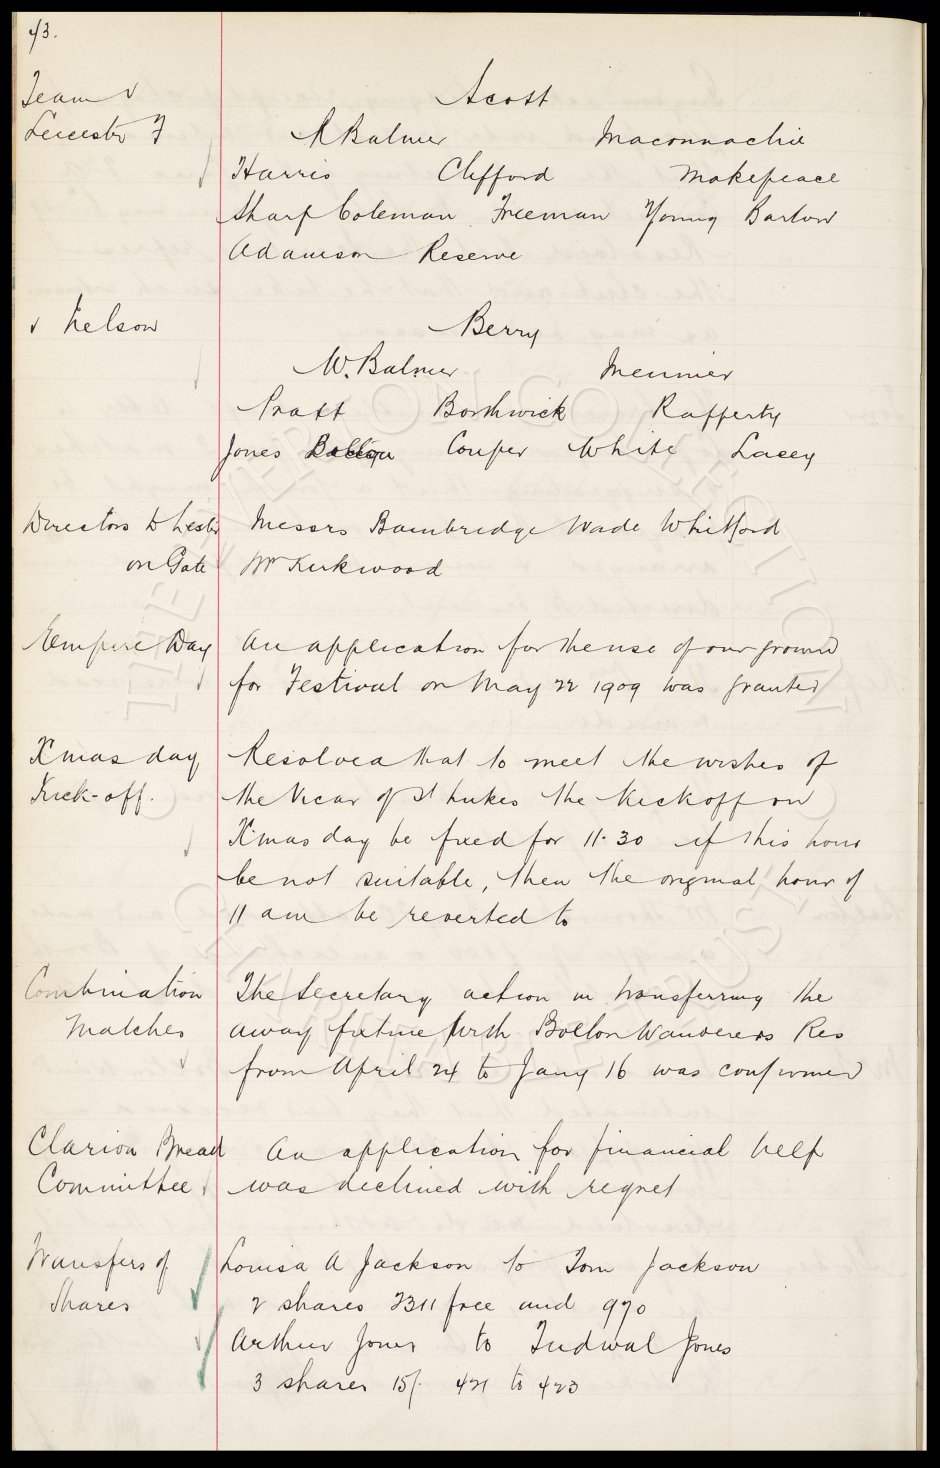 43.
Team v
Leicester F
Scott
R Balmer Maconnachie
Harris Clifford Makepeace
Sharp Coleman Freeman Young Barlow
Adamson Reserve
v Nelson
Berry
W. Balmer Meunier
Pratt Borthwick Rafferty
Jones Couper White Lacey
Directors to Lester
on Gate
Messrs Bainbridge Wade Whitford
Mr Kirkwood
Empire Day
An application for the use of our ground
for Festival on May 22 1909 was granted
X'mas day
Kick-off.
Resolved that to meet the wishes of
the Vicar of St Lukes the kick off on
X'mas day be fixed for 11.30 if this hour
be not suitable, then the original hour of
11 am be reverted to
Combination
Matches
The Secretary action in transferring the
away fixture with Bolton Wanderers Res
from April 24 to Jany 16 was confirmed
Clarion Bread
Committee
An application for financial help
was declined with regret
Transfers of
Shares
Louisa A Jackson to Tom Jackson
2 shares 2311 free and 970
Arthur Jones to Tudwal Jones
3 shares 15/- 421 to 423